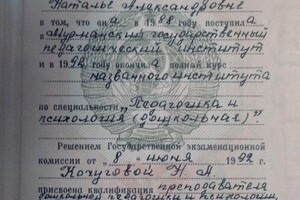 Наталье Александровне
в том, что она в 1988 году поступила
в Мурманский государственный
педагогический институт
и в 1992 году окончила полный курс
названного института
по специальности „Педагогика и
психология (дошкольная)".
Решением Государственной экзаменационной
комиссии от „8" июня 1992 г.
Кочуговой Н. А.
присвоена квалификация преподавателя
дошкольной педагогики и психологии,